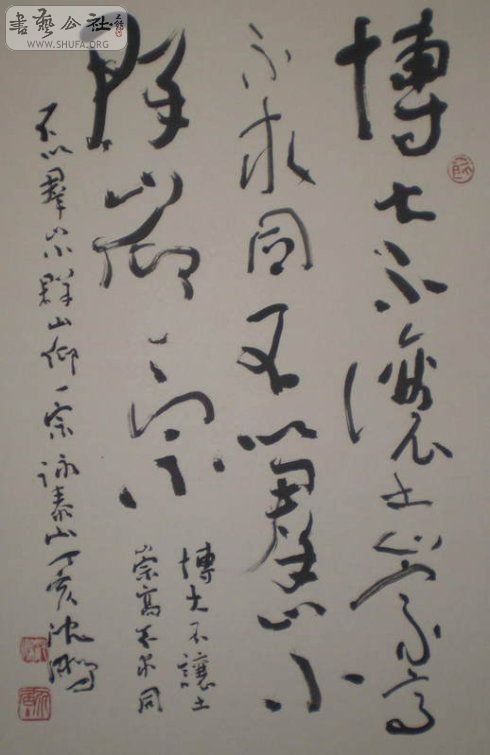 書藝公社
WWW.SHUFA.ORG
博大不讓土崇高
不求同不以羣山小
群山仰一宗
博大不讓土
崇高不求同
不以羣山小群山仰一宗詠泰山丁亥沈鵬